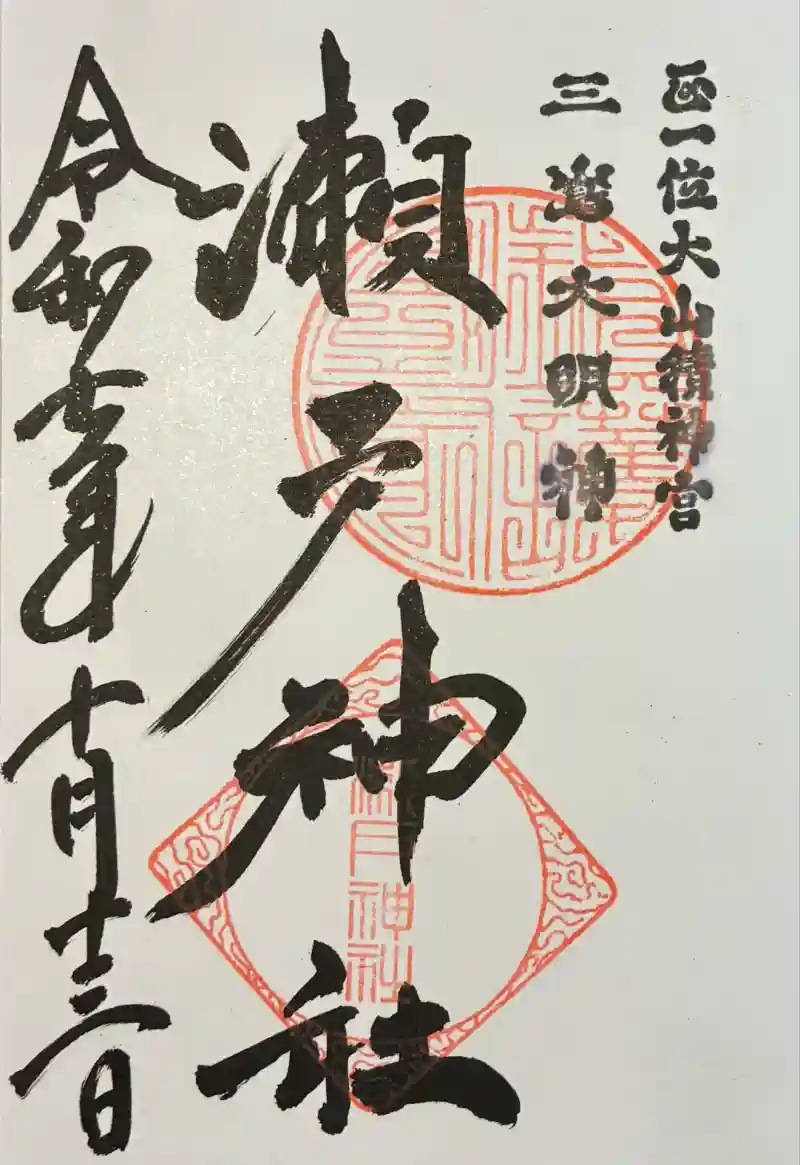 正一位大山積神宮
三嶌大明神
瀬戸神社
瀬戸神社
令和七年十月十三日